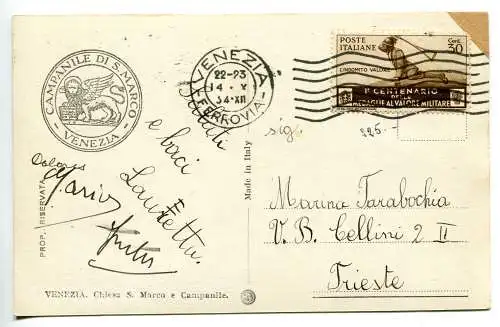 CAMPANILE DI S. MARCO
VENEZIA
VENEZIA
22-23
14 · V
34·XII
FERROVIA
POSTE ITALIANE
Cent. 30
L'INDOMITO VALORE
I° CENTENARIO
DELLE
MEDAGLIE AL VALORE MILITARE
Saluti
e baci
Lauretta
sig.
225.
Marina Tarabochia
V. B. Cellini 2 II
Trieste
Made in Italy
PROP. RISERVATA
VENEZIA. Chiesa S. Marco e Campanile.